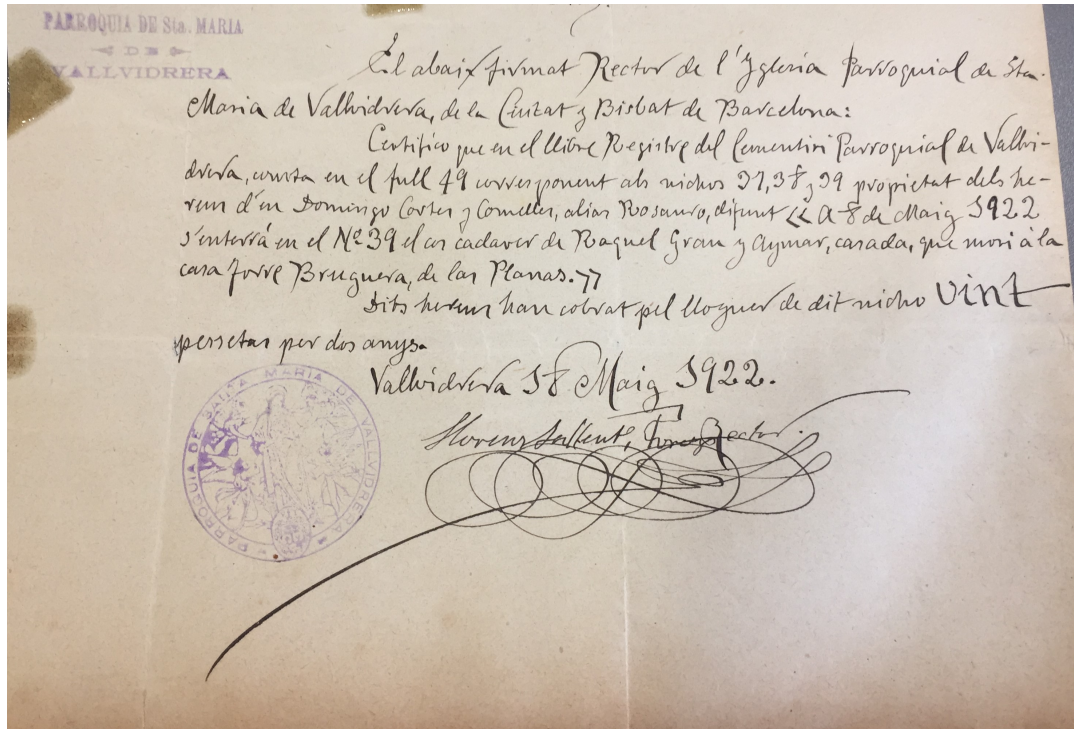 PARROQUIA DE Sta. MARIA
DE
VALLVIDRERA
El abaix firmat Rector de l'Yglesia Parroquial de Sta.
Maria de Vallvidrera, de la Ciutat y Bisbat de Barcelona:
Certifico que en el llibre Registre del Cementiri Parroquial de Vallvi-
drera, consta en el full 49 corresponent als nichos 37, 38 y 39 propietat dels he-
reus d'en Domingo Cortes y Comelles, alias Rosauro, difunt "A 8 de Maig 1922
s'enterrá en el Nº 39 el cos cadaver de Raquel Grau y Aymar, casada, que morí à la
casa Torre Bruguera, de las Planas."
Dits hereus han cobrat pel lloguer de dit nicho vint
pessetas per dos anys.
Vallvidrera 18 Maig 1922.
Llorens Sallent, Rector.
PARROQUIA DE SANTA MARIA DE VALLVIDRERA